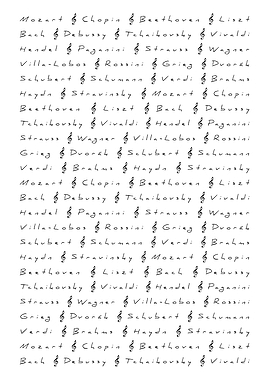 Mozart 𝄞 Chopin 𝄞 Beethoven 𝄞 Liszt
Bach 𝄞 Debussy 𝄞 Tchaikovsky 𝄞 Vivaldi
Handel 𝄞 Paganini 𝄞 Strauss 𝄞 Wagner
Villa-Lobos 𝄞 Rossini 𝄞 Grieg 𝄞 Dvorák
Schubert 𝄞 Schumann 𝄞 Verdi 𝄞 Brahms
Haydn 𝄞 Stravinsky 𝄞 Mozart 𝄞 Chopin
Beethoven 𝄞 Liszt 𝄞 Bach 𝄞 Debussy
Tchaikovsky 𝄞 Vivaldi 𝄞 Handel 𝄞 Paganini
Strauss 𝄞 Wagner 𝄞 Villa-Lobos 𝄞 Rossini
Grieg 𝄞 Dvorák 𝄞 Schubert 𝄞 Schumann
Verdi 𝄞 Brahms 𝄞 Haydn 𝄞 Stravinsky
Mozart 𝄞 Chopin 𝄞 Beethoven 𝄞 Liszt
Bach 𝄞 Debussy 𝄞 Tchaikovsky 𝄞 Vivaldi
Handel 𝄞 Paganini 𝄞 Strauss 𝄞 Wagner
Villa-Lobos 𝄞 Rossini 𝄞 Grieg 𝄞 Dvorák
Schubert 𝄞 Schumann 𝄞 Verdi 𝄞 Brahms
Haydn 𝄞 Stravinsky 𝄞 Mozart 𝄞 Chopin
Beethoven 𝄞 Liszt 𝄞 Bach 𝄞 Debussy
Tchaikovsky 𝄞 Vivaldi 𝄞 Handel 𝄞 Paganini
Strauss 𝄞 Wagner 𝄞 Villa-Lobos 𝄞 Rossini
Grieg 𝄞 Dvorák 𝄞 Schubert 𝄞 Schumann
Verdi 𝄞 Brahms 𝄞 Haydn 𝄞 Stravinsky
Mozart 𝄞 Chopin 𝄞 Beethoven 𝄞 Liszt
Bach 𝄞 Debussy 𝄞 Tchaikovsky 𝄞 Vivaldi